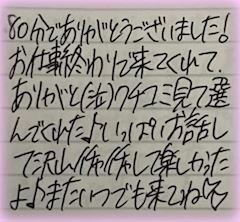 80分でありがとうございました!
お仕事終わりで来てくれて、
ありがと(泣)クチコミ見て選
んでくれた♪いっぱいお話し
て沢山イチャイチャして楽しかった
よ♪またいつでも来てね♡